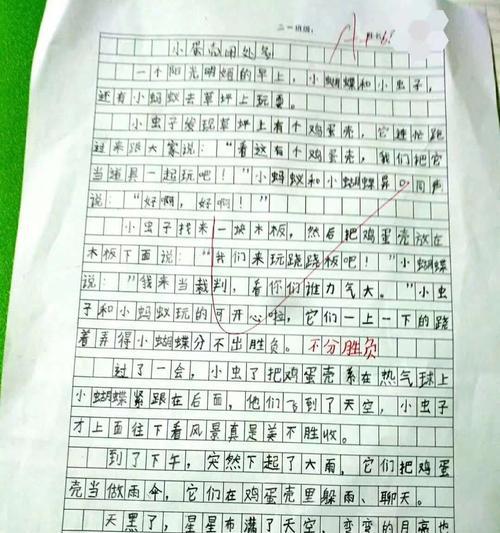 二一班级：
小蛋壳用处多
一个阳光明媚的早上，小蝴蝶和小虫子，
还有小蚂蚁去草坪上玩耍。
小虫子发现草坪上有个鸡蛋壳，它连忙跑
过来跟大家说："看这有个鸡蛋壳，我们把它
当道具一起玩吧！"小蚂蚁和小蝴蝶异口同声
说："好啊，好啊！"
小虫子找来一块木板，然后把鸡蛋壳放在
木板下面说："我们来玩跷跷板吧！"小蝴蝶
说："我来当裁判，看你们谁力气大。"小虫
子和小蚂蚁玩的可开心啦，它们一上一下的跷
着弄得小蝴蝶分不出胜负。不分胜负
过了一会，小虫了把鸡蛋壳系在热气球上
小蝴蝶紧跟在后面，他们飞到了天空，小虫子
才上面往下看风景真是美不胜收。
到了下午，突然下起了大雨，它们把鸡蛋
壳当做雨伞，它们在鸡蛋壳里躲雨、聊天。
天黑了，星星布满了天空，弯弯的月亮也